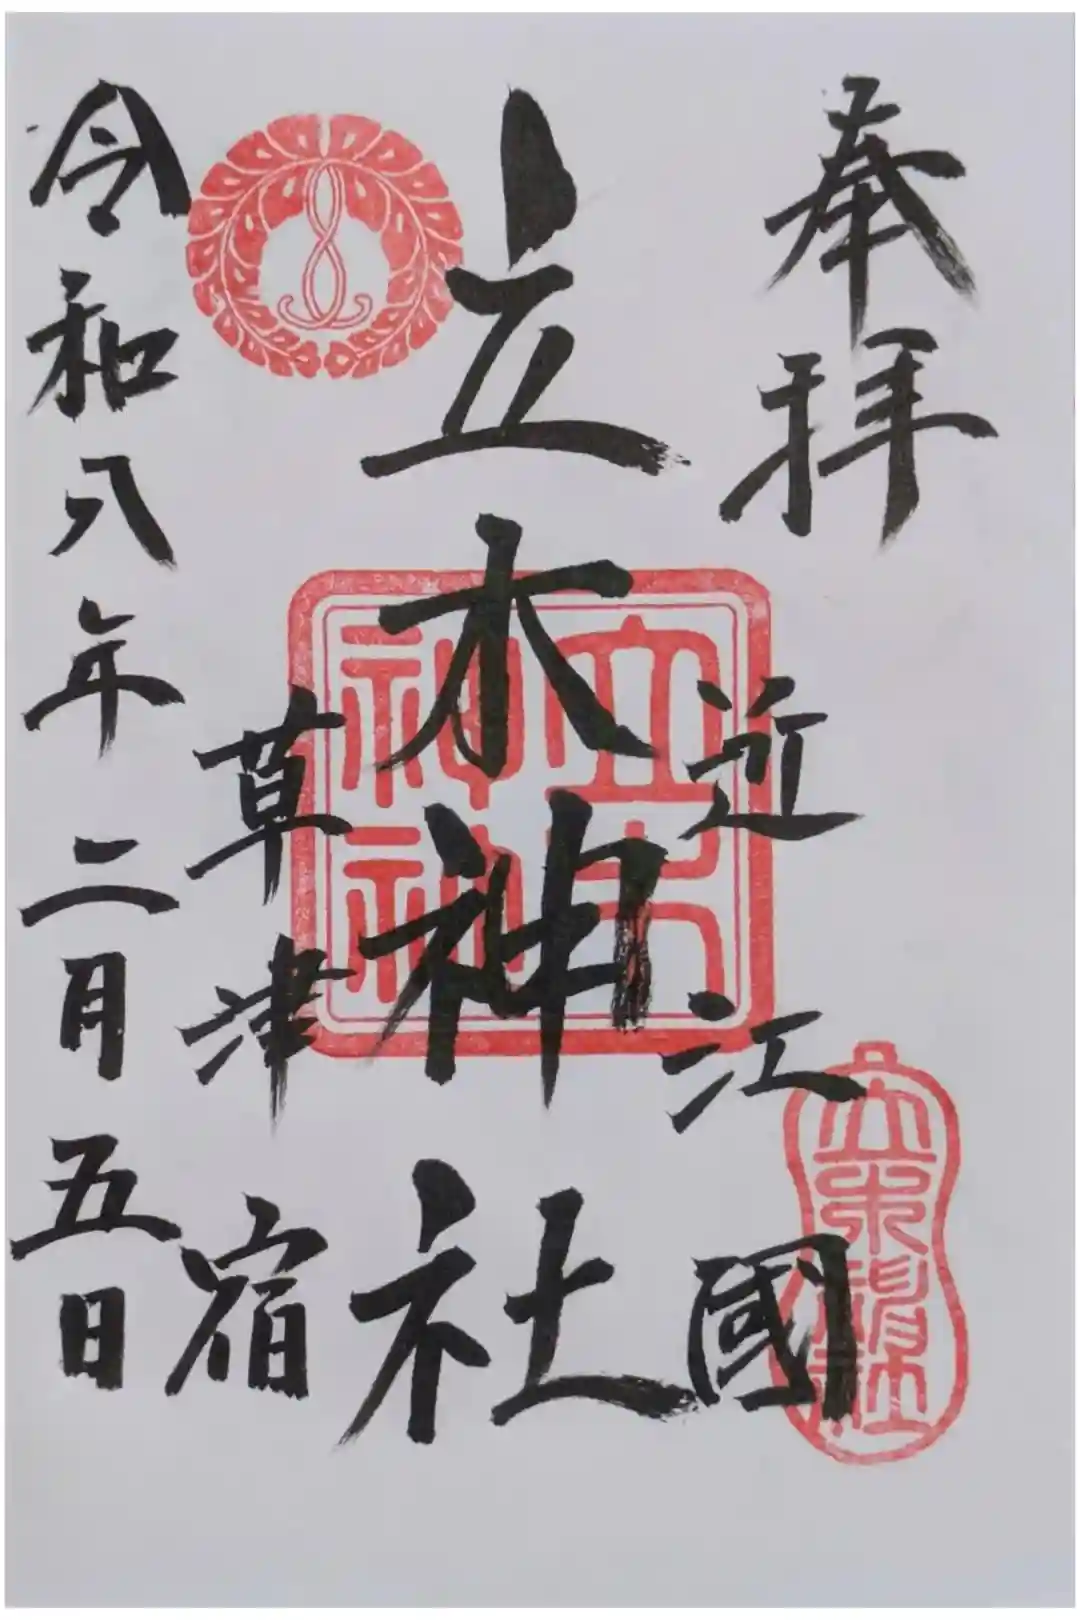 奉拝
近江國
立木神社
草津宿
令和八年二月五日
立木神社
立木神社